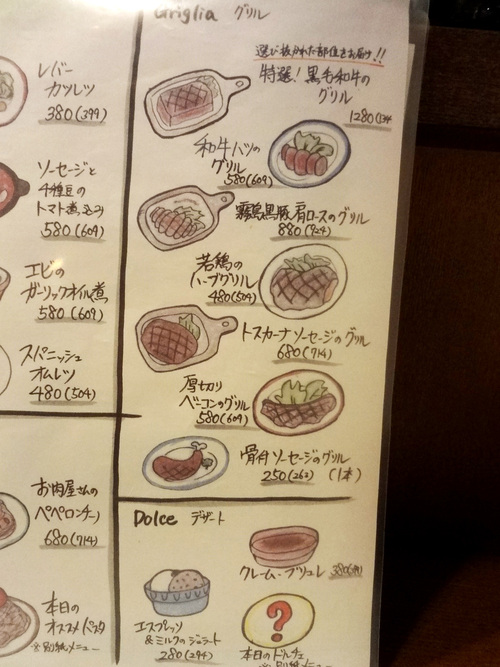 レバー
カツレツ
380(399)
ソーセージと
4種豆の
トマト煮込み
580(609)
エビの
ガーリックオイル煮
580(609)
スパニッシュ
オムレツ
480(504)
お肉屋さんの
ペペロンチーノ
680(714)
本日の
オススメパスタ
※別紙メニュー
Griglia グリル
選び抜かれた部位をお届け!!
特選!黒毛和牛の
グリル
1280
和牛ハツの
グリル
580(609)
霧島黒豚肩ロースのグリル
880(924)
若鶏の
ハーブグリル
480(504)
トスカーナソーセージのグリル
680(714)
厚切り
ベーコンのグリル
580(609)
骨付ソーセージのグリル
250(262) (1本)
Dolce デザート
クレーム・ブリュレ 380
エスプレッソ
&ミルクのジェラート
280(294)
?
本日のドルチェ
※別紙メニュー